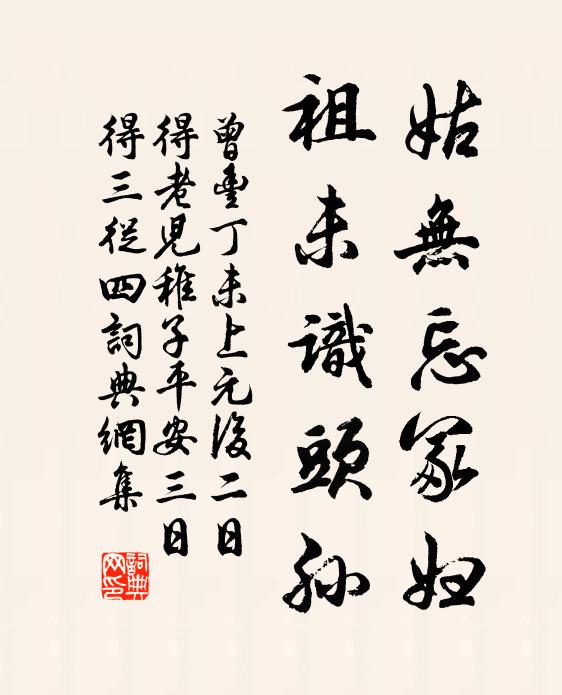 姑無忘冢婦
祖未識頭孫
曾豐丁未上元後二日
得老兒稚子平安三日
得三從四詞典網集
詞典网印